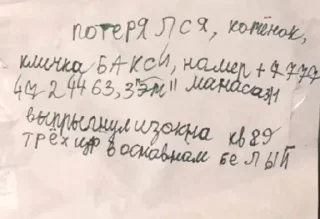 ПОТЕРЯЛСЯ, котёнок,
кличка БАКСИ, намер + 7777
47 24463, 3"эт" манаса 31
выпрыгнул из окна кв 89
ТРЁХ цв в оснавнам беЛЫЙ